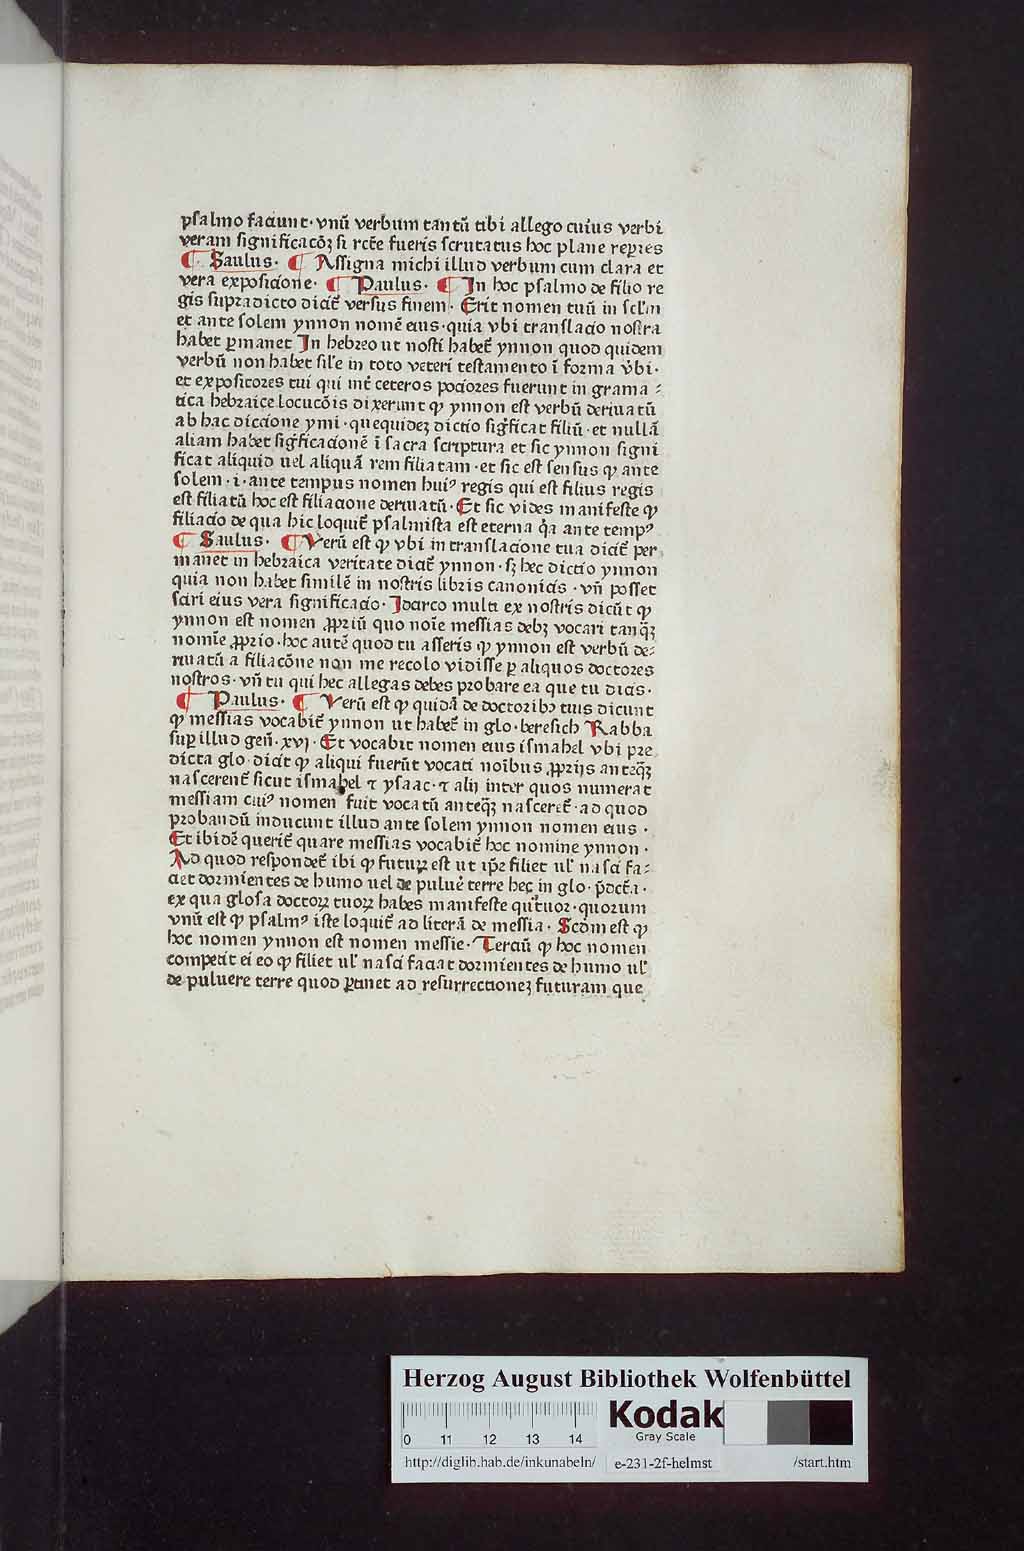 psalmo faciunt· vnū verbum tantū tibi allego cuius verbi
veram significacōꝫ si rct̄e fueris scrutatus hoc plane reꝑies
¶ Saulus· ¶ Assigna michi illud verbum cum clara et
vera exposicione· ¶ Paulus· ¶ In hoc psalmo de filio re
gis supradicto dicit̄ versus finem· Erit nomen tuū in scl̄m
et ante solem ynnon nomē eius· quia vbi translacio nostra
habet ꝑmanet In hebreo ut nosti habet̄ ynnon quod quidem
verbū non habet sil̄e in toto veteri testamento ī forma v̄bi·
et expositores tui qui int̄ ceteros pociores fuerunt in grama⸗
tica hebraice locucōis dixerunt ꝙ ynnon est verbū deriuatū
ab hac diccione ymi· quequidez dictio siḡficat filiū· et nullā
aliam habet siḡficacionē ī sacra scriptura et sic ynnon signi
ficat aliquid uel aliquā rem filiatam· et sic est sensus ꝙ ante
solem· i· ante tempus nomen huiꝰ regis qui est filius regis
est filiatū hoc est filiacione deriuatū· Et sic vides manifeste ꝙ
filiacio de qua hic loquit̄ psalmista est eterna q̄a ante tempꝰ
¶ Saulus· ¶ Verū est ꝙ vbi in translacione tua dicit̄ per
manet in hebraica veritate dicit̄ ynnon· sꝫ hec dictio ynnon
quia non habet similē in nostris libris canonicis· vn̄ posset
sciri eius vera significacio· Idarco multi ex nostris dicūt ꝙ
ynnon est nomen ꝓpriū quo noīe messias debꝫ vocari tanqꝫ
nomīe ꝓprio· hoc autē quod tu asseris ꝙ ynnon est verbū de⸗
riuatū a filiacōne non me recolo vidisse ꝑ aliquos doctores
nostros· vn̄ tu qui hec allegas debes probare ea que tu dicis·
¶ Paulus· ¶ Verū est ꝙ quidā de doctoribꝫ tuis dicunt
ꝙ messias vocabit̄ ynnon ut habet̄ in glo· beresich Rabba
suꝑ illud gen̄· xvj· Et vocabit nomen eius ismahel vbi pre
dicta glo· dicit ꝙ aliqui fuerūt vocati noībus ꝓprijs anteqꝫ
nascerent̄ sicut ismahel ⁊ ysaac· ⁊ alij inter quos numerat
messiam cuiꝰ nomen fuit vocatū anteqꝫ nasceret̄· ad quod
probandū inducunt illud ante solem ynnon nomen eius·
Et ibidē querit̄ quare messias vocabit̄ hoc nomine ynnon·
Ad quod respondet̄ ibi ꝙ futuꝝ est ut ip̄e filiet ul̄ nasci fa⸗
ciet dormientes de humo uel de puluē terre hec in glo· p̄dcta·
ex qua glosa doctoꝝ tuoꝝ habes manifeste qu̓tuor· quorum
vnū est ꝙ psalmꝰ iste loquit̄ ad literā de messia· Scdm̄ est ꝙ
hoc nomen ynnon est nomen messie· Terciū ꝙ hoc nomen
competit ei eo ꝙ filiet ul̄ nasci faciat dormientes de humo ul̄
de puluere terre quod ꝑtinet ad resurrectionez futuram que
Herzog August Bibliothek Wolfenbüttel
0 11 12 13 14
Kodak
Gray Scale
http://diglib.hab.de/inkunabeln/ e-231-2f-helmst /start.htm